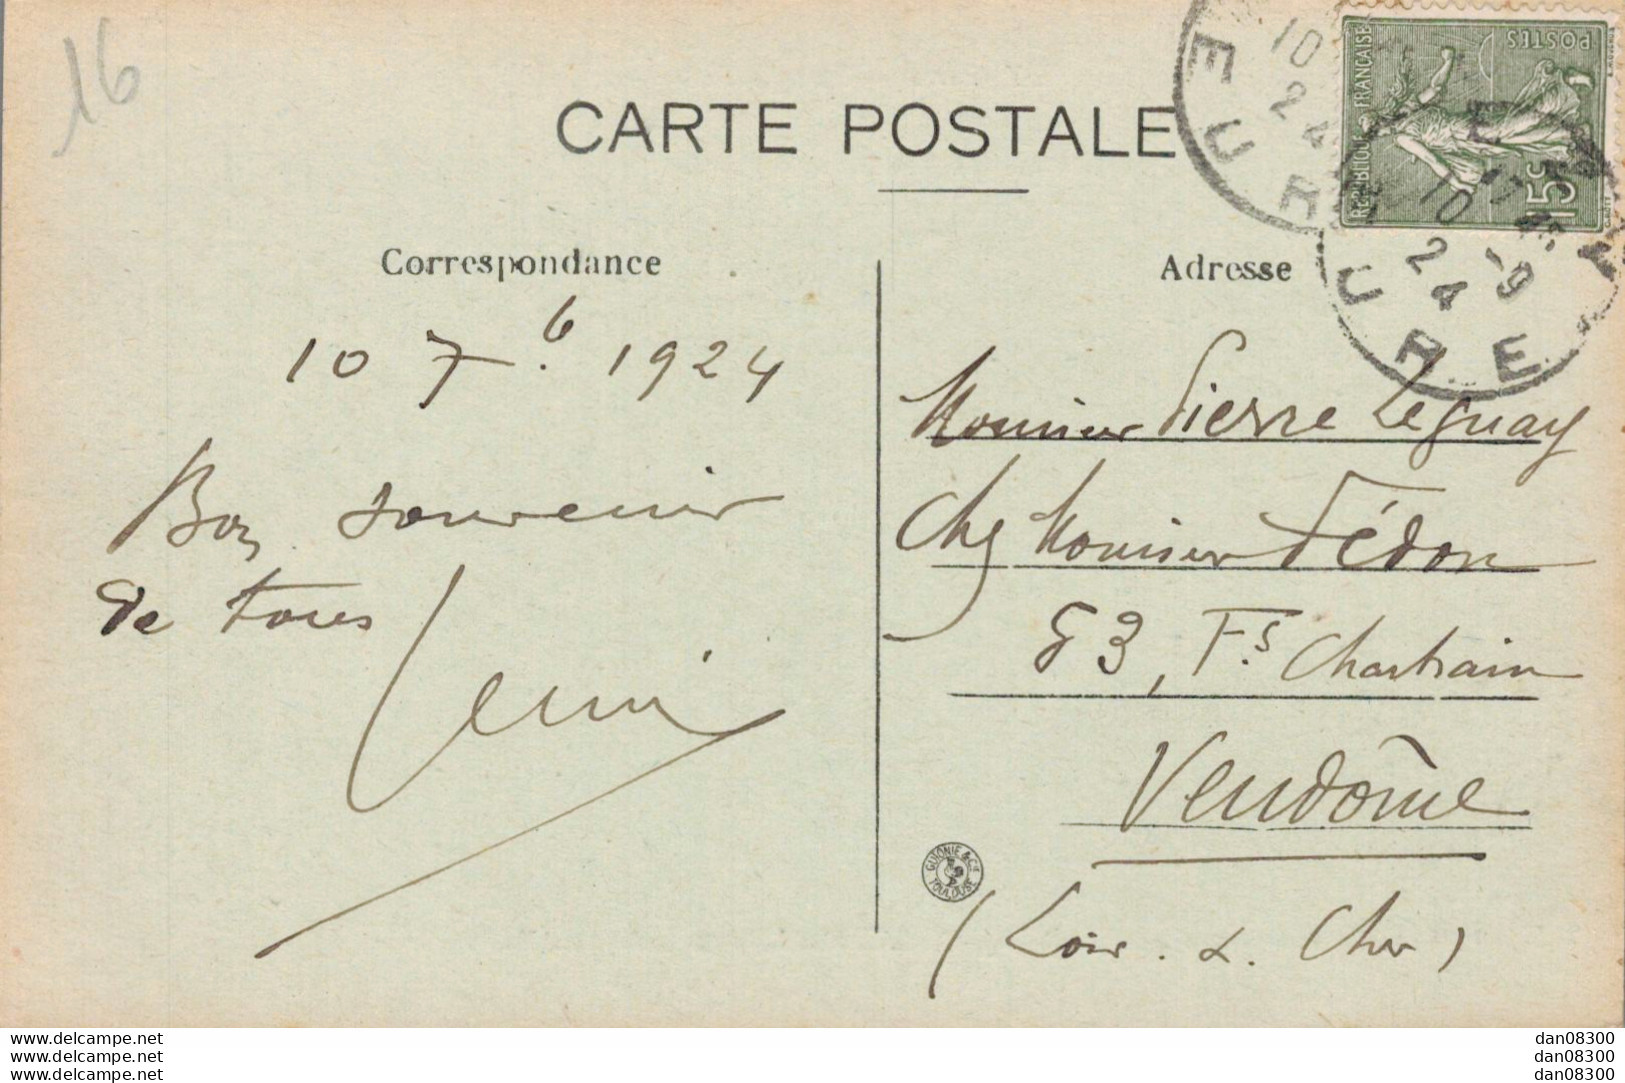 16
CARTE POSTALE
Correspondance
10 7b. 1924
Bon souvenir
de tous
Adresse
Monsieur Pierre Leguay
Chez Monsieur Fédon
83, Fg Chartrain
Vendôme
(Loir. & Cher)
GUIONIE & Cie
TOULOUSE
REPUBLIQUE FRANÇAISE
POSTES
15c
EURE
10
24
URE
10 -9
24
www.delcampe.net
www.delcampe.net
www.delcampe.net
dan08300
dan08300
dan08300